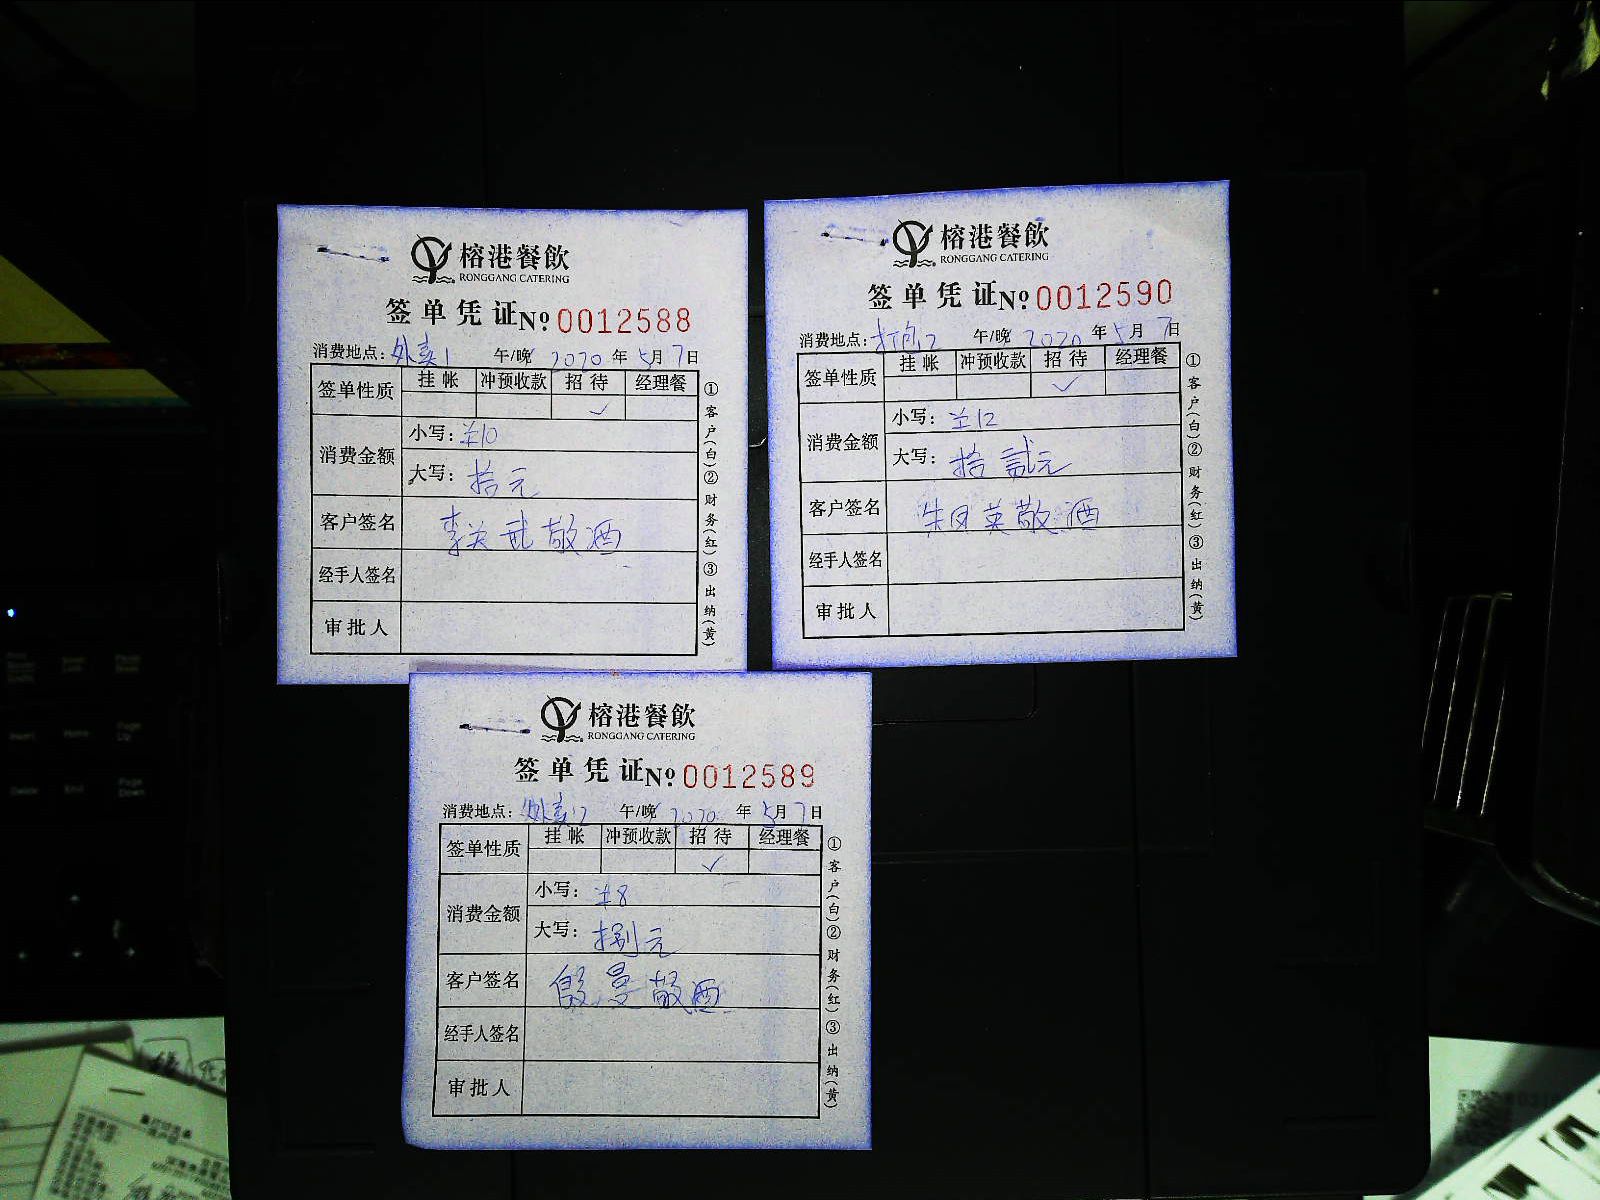 榕港餐飲
RONGGANG CATERING
签单凭证 No 0012588
消费地点：外卖1 午/晚 2020年5月7日
签单性质 挂帐 冲预收款 招待 经理餐
✓
消费金额 小写：¥10
大写：拾元
客户签名 李关武敬酒
经手人签名
审批人
①客户(白)②财务(红)③出纳(黄)
榕港餐飲
RONGGANG CATERING
签单凭证 No 0012590
消费地点：打包2 午/晚 2020年5月7日
签单性质 挂帐 冲预收款 招待 经理餐
✓
消费金额 小写：¥12
大写：拾贰元
客户签名 朱凤英敬酒
经手人签名
审批人
①客户(白)②财务(红)③出纳(黄)
榕港餐飲
RONGGANG CATERING
签单凭证 No 0012589
消费地点：外卖2 午/晚 2020年5月7日
签单性质 挂帐 冲预收款 招待 经理餐
✓
消费金额 小写：¥8
大写：捌元
客户签名 殷曼敬酒
经手人签名
审批人
①客户(白)②财务(红)③出纳(黄)
Home
Page Up
Delete
End
Page Down